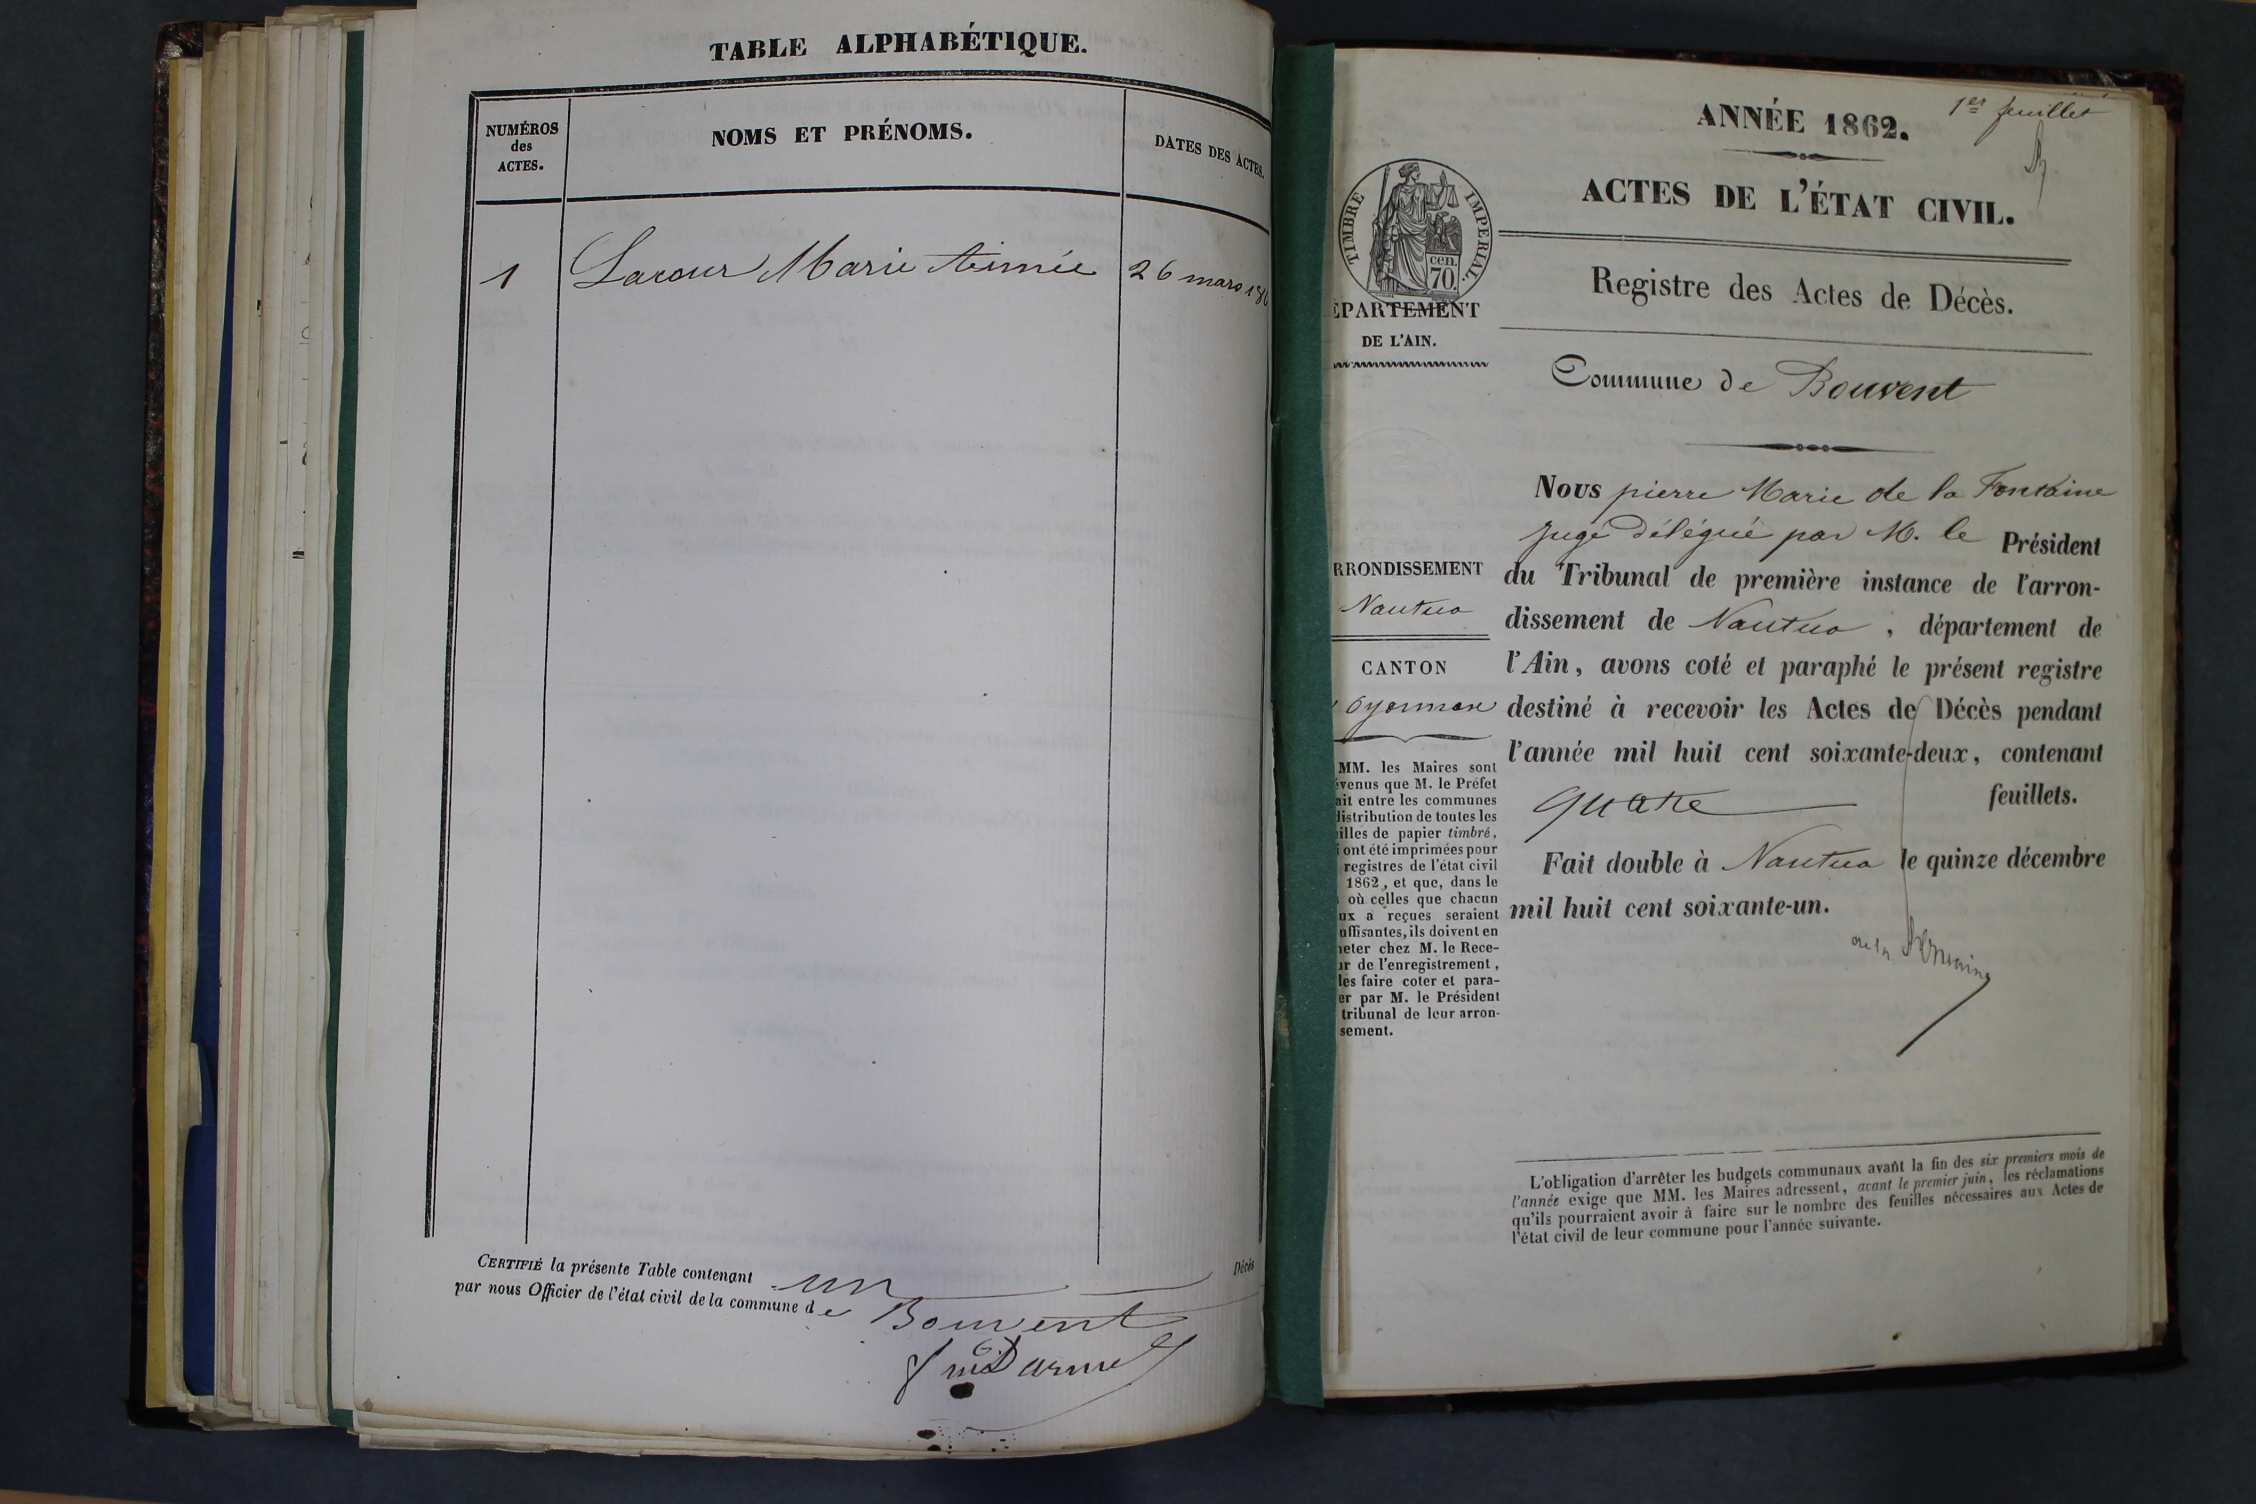 TABLE ALPHABÉTIQUE.
NUMÉROS
des
ACTES.
NOMS ET PRÉNOMS.
DATES DES ACTES.
1 Lacour Marie Aimée 26 mars 186
CERTIFIÉ la présente Table contenant un Décès
par nous Officier de l'état civil de la commune de Bouvent
1er feuillet
ANNÉE 1862.
ACTES DE L'ÉTAT CIVIL.
TIMBRE IMPERIAL.
cen.
70.
ÉPARTEMENT
DE L'AIN.
Registre des Actes de Décès.
Commune de Bouvent
RRONDISSEMENT
Nantua
CANTON
Oyonnax
MM. les Maires sont
évenus que M. le Préfet
ait entre les communes
distribution de toutes les
illes de papier timbré,
i ont été imprimées pour
registres de l'état civil
1862, et que, dans le
où celles que chacun
ux a reçues seraient
uffisantes, ils doivent en
heter chez M. le Rece-
ur de l'enregistrement,
les faire coter et para-
er par M. le Président
tribunal de leur arron-
sement.
Nous pierre Marie de la Fontaine
juge délégué par M. le Président
du Tribunal de première instance de l'arron-
dissement de Nantua, département de
l'Ain, avons coté et paraphé le présent registre
destiné à recevoir les Actes de Décès pendant
l'année mil huit cent soixante-deux, contenant
quatre feuillets.
Fait double à Nantua le quinze décembre
mil huit cent soixante-un.
de la Fontaine
L'obligation d'arrêter les budgets communaux avant la fin des six premiers mois de
l'année exige que MM. les Maires adressent, avant le premier juin, les réclamations
qu'ils pourraient avoir à faire sur le nombre des feuilles nécessaires aux Actes de
l'état civil de leur commune pour l'année suivante.